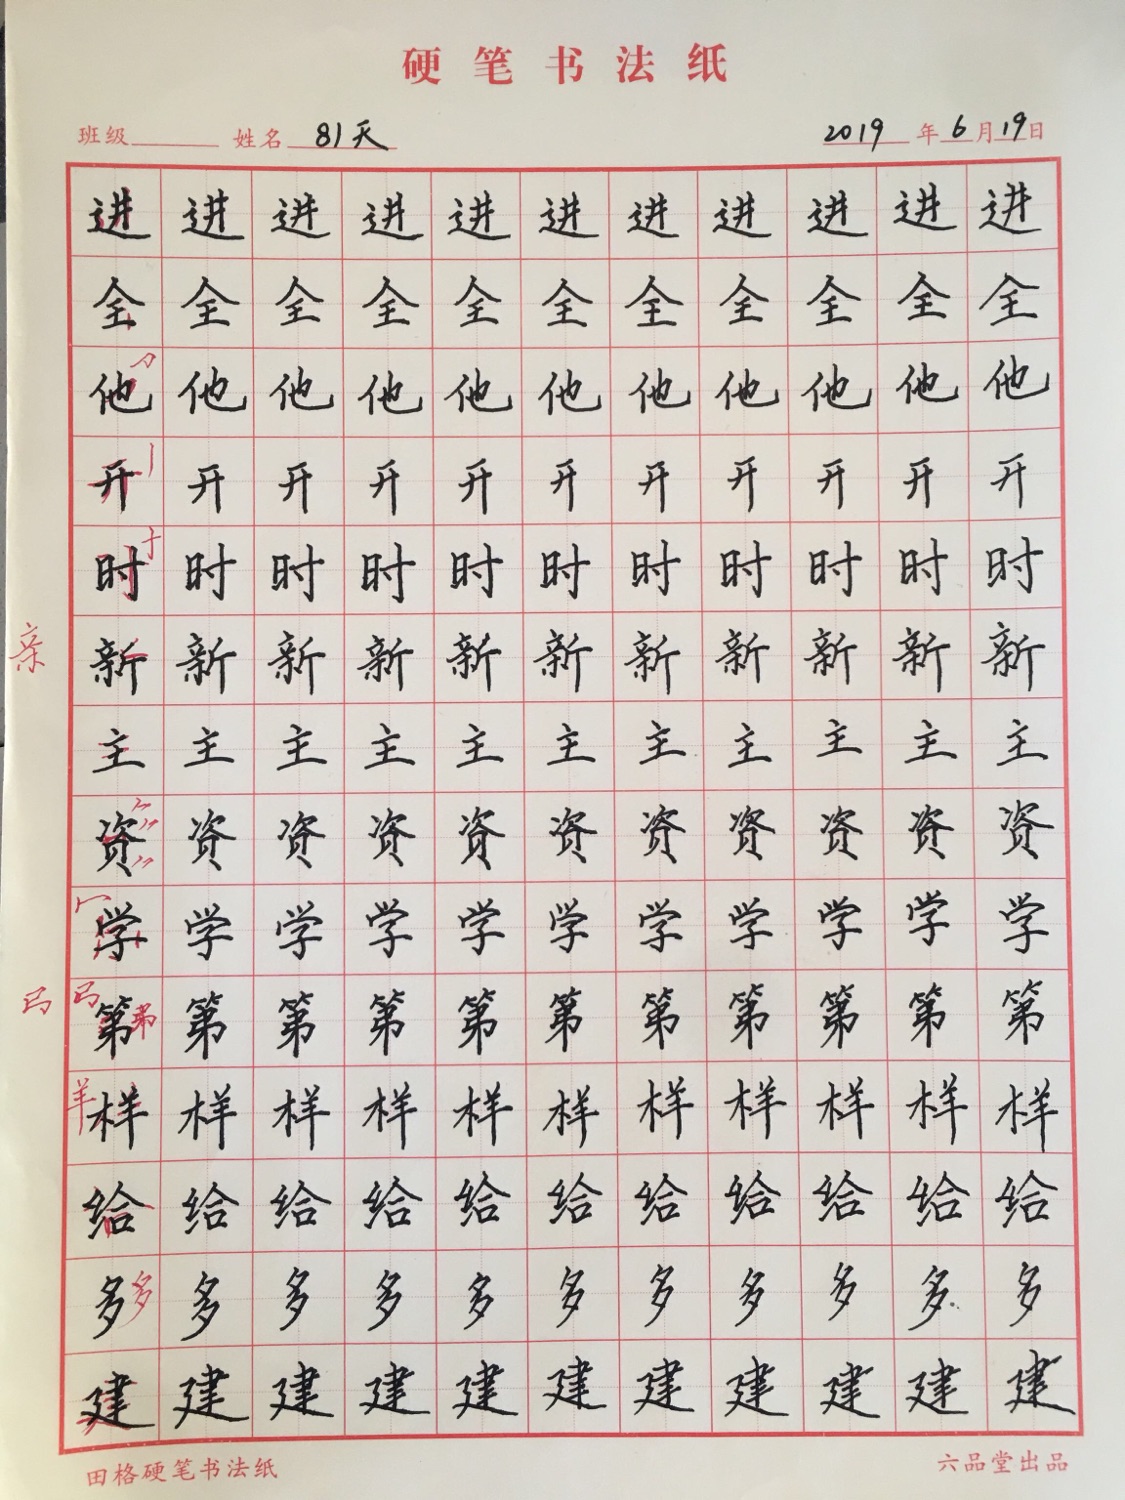 硬笔书法纸
班级 姓名 81天 2019年6月19日
进进进进进进进进进进进
全全全全全全全全全全全
他他他他他他他他他他他
开开开开开开开开开开开
时时时时时时时时时时时
亲 新新新新新新新新新新新
主主主主主主主主主主主
资资资资资资资资资资资
学学学学学学学学学学学
弓 弓 第弟第第第第第第第第第第
羊 样样样样样样样样样样样
给给给给给给给给给给给
多多多多多多多多多多多多
建建建建建建建建建建建
田格硬笔书法纸 六品堂出品